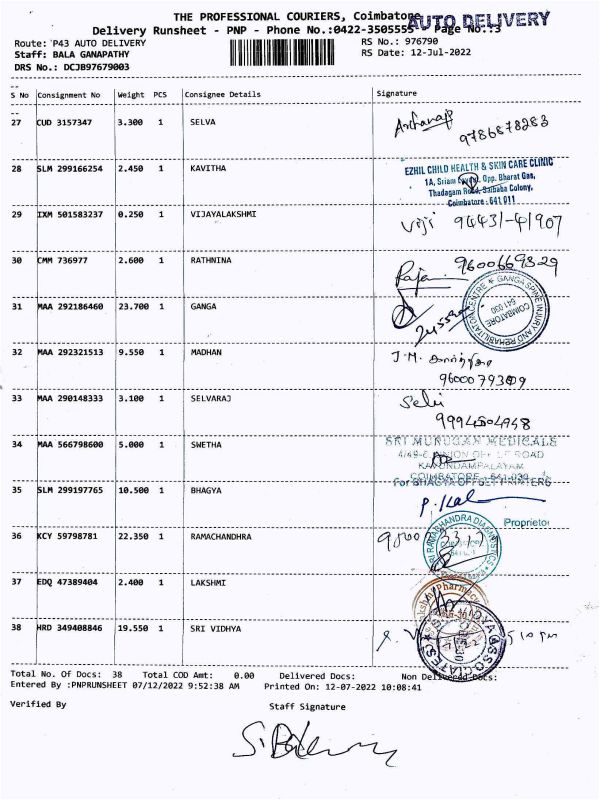 THE PROFESSIONAL COURIERS, Coimbatore
AUTO DELIVERY
Delivery Runsheet - PNP - Phone No.:0422-3505555 Page No.:3
Route: P43 AUTO DELIVERY
RS No.: 976790
Staff: BALA GANAPATHY
RS Date: 12-Jul-2022
DRS No.: DCJB97679003
S No Consignment No Weight PCS Consignee Details Signature
27 CUD 3157347 3.300 1 SELVA
9786878283
28 SLM 299166254 2.450 1 KAVITHA
EZHIL CHILD HEALTH & SKIN CARE CLINIC
1A, Sriam Opp. Bharat Gas,
Thadagam Road, Saibaba Colony,
Coimbatore - 641 011
29 IXM 501583237 0.250 1 VIJAYALAKSHMI
Viji 94431-41907
30 CMM 736977 2.600 1 RATHNINA
Raja 9600669329
31 MAA 292186460 23.700 1 GANGA
GANGA SPINE INJURY AND REHABILITATION CENTRE
COIMBATORE
641 030
32 MAA 292321513 9.550 1 MADHAN
J.M.
33 MAA 290148333 3.100 1 SELVARAJ
Selvi
9994504948
34 MAA 566798600 5.000 1 SWETHA
SRI MURUGAN MEDICALS
ROAD
KAVUNDAMPALAYAM
COIMBATORE
35 SLM 299197765 10.500 1 BHAGYA
For BHAGYA OFFSET PRINTERS
Proprietor
36 KCY 59798781 22.350 1 RAMACHANDRA
SRI RAMACHANDRA DIAGNOSTICS
37 EDQ 47389404 2.400 1 LAKSHMI
Pharmacy
38 HRD 349408846 19.550 1 SRI VIDHYA
VIDYA & ASSOCIATES
5.10 pm
Total No. Of Docs: 38 Total COD Amt: 0.00 Delivered Docs: Non Delivered Docs:
Entered By :PNPRUNSHEET 07/12/2022 9:52:38 AM Printed On: 12-07-2022 10:08:41
Verified By Staff Signature